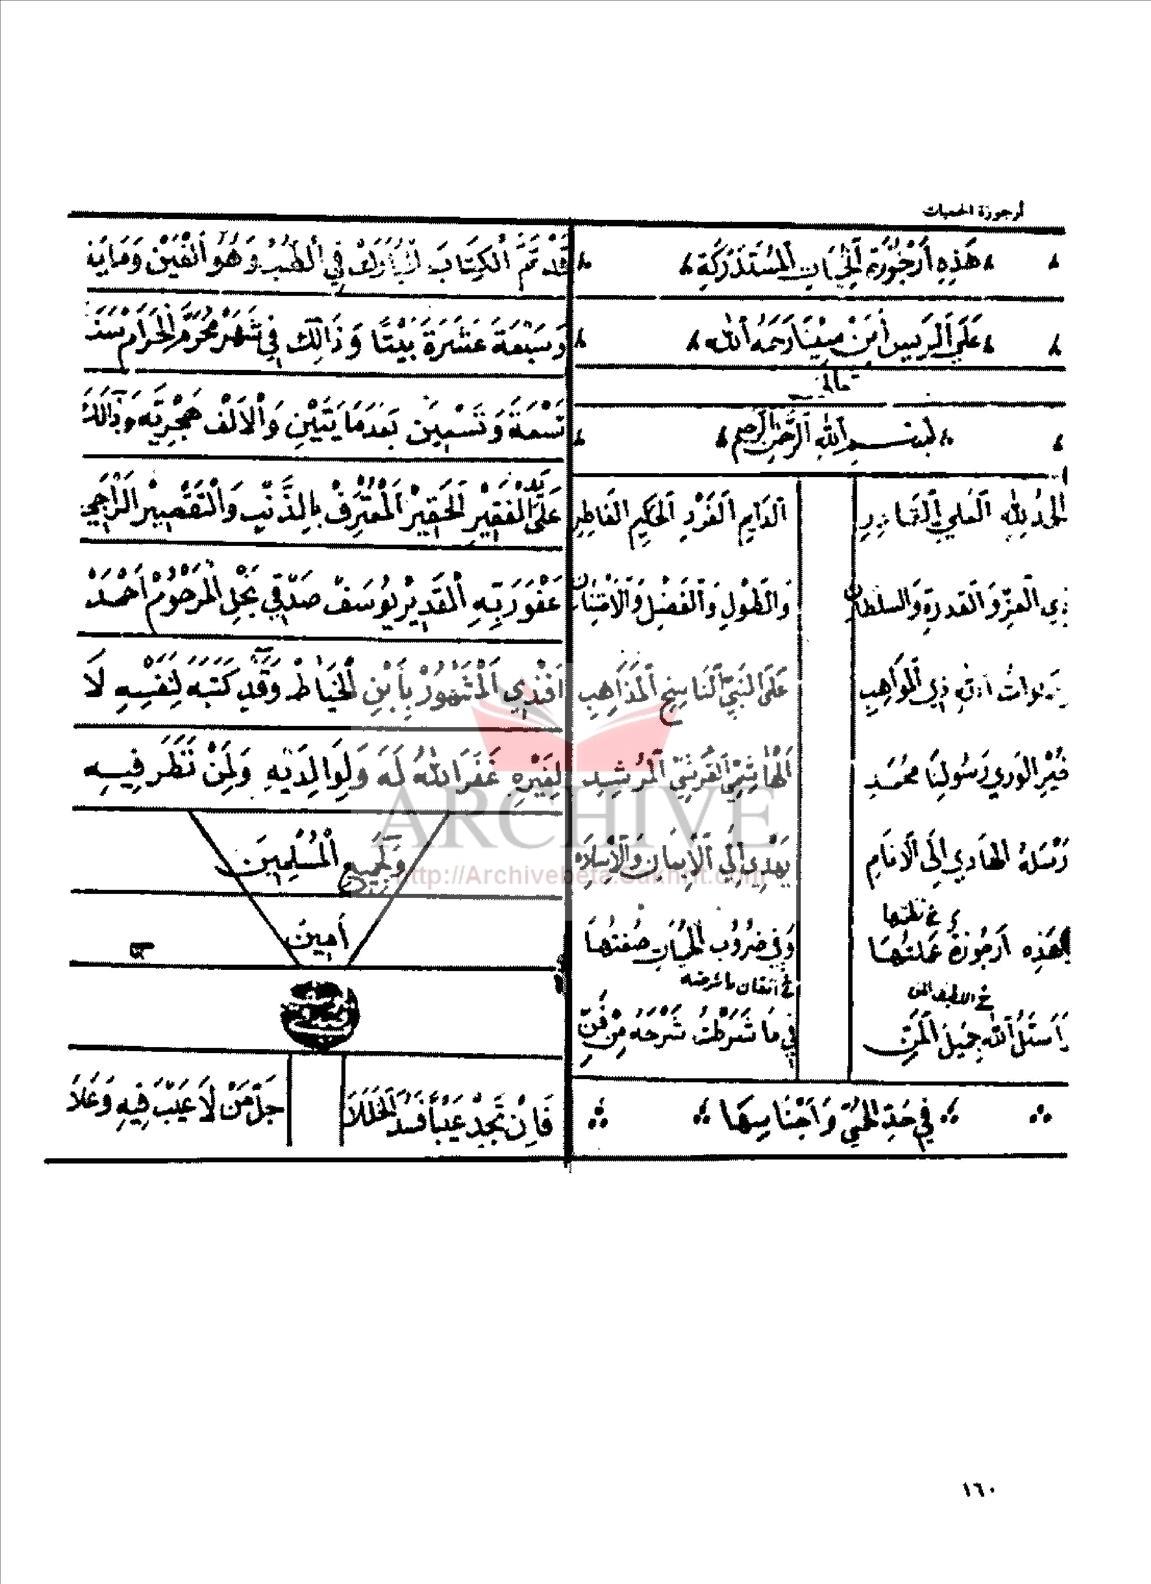 أرجوزة الحميات
هَذِهِ أَرْجُوزَة الْحُمِّيَاتِ الْمُسْتَدْرَكَةِ
عَلَى الرَّيِيس أَبِنْ سِيْنَا رَحَمَهُ اللَّه
تعالى
بسم الله الرَّحْمَنِ الرَّحِيم
الحمد لله العَلِيِّ القَادِرِ الدَّايِمِ الفَرْدِ الحَكِيمِ الفَاطِرِ
ذِي العِزِّ وَالقدرَةِ وَالسلطَانِ وَالطَّوْلِ وَالفَضْلِ وَالامْتِنَانِ
صلوات الله ذِي المَوَاهِبِ عَلَى النَّبِيِّ النَاسِخِ المَذَاهِبِ
خَيْرِ الوَرَي رَسُولِنَا مُحَمَّدِ الهَاشِمِيِّ القُرَشِيِّ المُرْشِدِ
رْسَلهُ الهَادِي إِلَى الأَنَامِ يَهْدِي إِلَى الإِيمَانِ وَالإِسْلَامِ
خ نظمتها
هَذِهِ أَرْجُوزَة عَمِلتُهَا وَفِي ضُرُوبِ الحُمِّيَاتِ صُغتُهَا
خ اللطيف المن
خ اتقان ما شرحته
أَسْئَلُ اللَّه جَمِيلَ المَنِّ فِي مَا شَرَطْتُ شَرْحَهُ مِنْ فَنِّ
فِي حَدِّ الحُمَّى وَأَجْنَاسِهَا
قَدْ تَمَّ الْكِتَابِ الْمُبَارَكْ فِي الطِّبْ وَهُوَ أَلْفَيْنِ وَمَايَة
وَسَبْعَةَ عَشَرَةَ بَيْتًا وَذَالِكَ فِي شَهَرْ مُحَرَّم الحَرَامْ سَنَة
تِسْعَةَ وَتِسْعِينَ بَعْدَ مَايَتَيْنِ وَالْأَلَفْ هَجْرِيَّه وَذَالِكَ
عَلَى يَدْ الْفَقِيْرِ الحَقِيْرِ الْمُعْتَرِفْ بِالذَّنْبِ وَالتَّقْصِيْرِ الرَّاجِي
عَفْوَ رَبِّهِ الْقَدِيْر يُوسَفْ صِدْقِي نَجْلِ الْمَرْحُوْم أَحْمَدْ
أَفَنْدِي الْمَشْهُوْرْ بِأَبْنِ الْخَيَّاطْ وَقَدْ كَتَبَهُ لِنَفْسِهِ لَا
لِغَيْرِهِ غَفَرَ اللَّهُ لَهُ وَلِوَالِدَيْهِ وَلِمَنْ نَظَرَ فِيْهِ
وَلِجَمِيعِ الْمُسْلِمِينَ
أَمِينَ
فَإِنْ تَجِدْ عَيْبًا فَسُدَّ الخَلَلَا جَلَّ مَنْ لَا عَيْبَ فِيهِ وَعَلَا
ARCHIVE
http://Archivebeta.Sakhrit.com
١٦٠